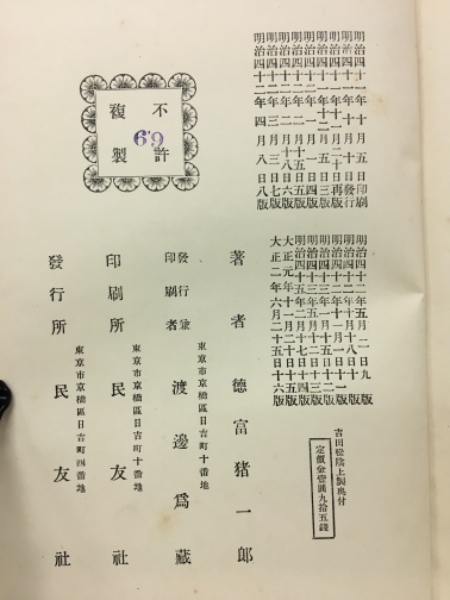 明治四十一年十月五日印刷
明治四十一年十月十日發行
明治四十一年十一月二十日再版
明治四十一年十二月五日三版
明治四十二年一月一日四版
明治四十二年二月十五日五版
明治四十二年二月十八日六版
明治四十二年三月三日七版
明治四十二年四月八日八版
明治四十二年五月二日九版
明治四十二年十月十八日十版
明治四十三年五月五日十二版
大正元年十一月二十日十五版
大正二年六月二十五日十六版
吉田松陰上製奥付
定價金壹圓九拾五錢
著者 德富猪一郎
東京市京橋區日吉町十番地
發行兼印刷者 渡邊爲藏
東京市京橋區日吉町十番地
印刷所 民友社
東京市京橋區日吉町四番地
發行所 民友社
不許
複製
6.9